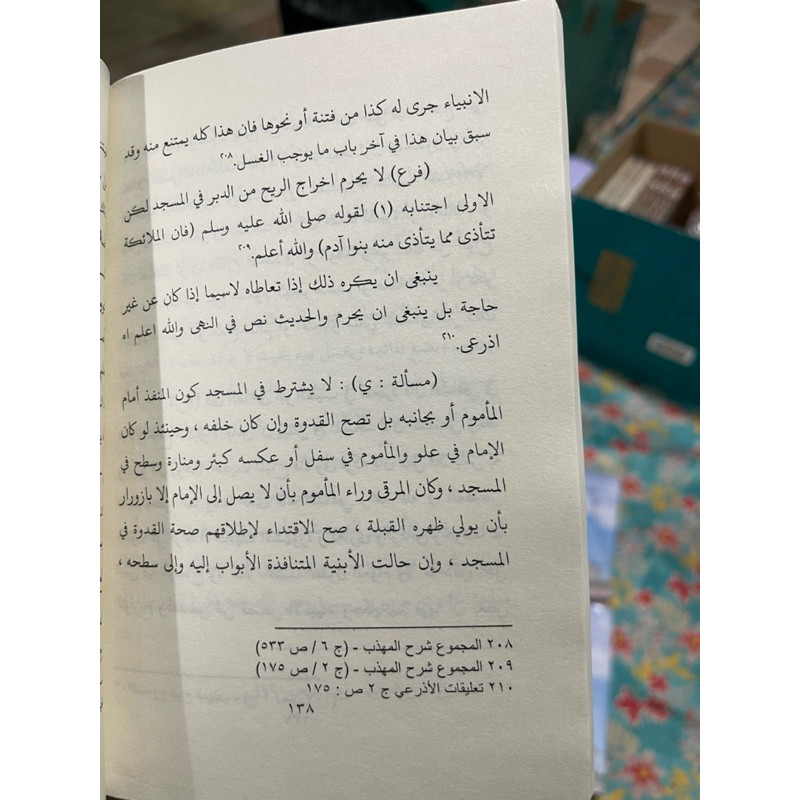 الانبياء جرى له كذا من فتنة أو نحوها فان هذا كله يمتنع منه وقد
سبق بيان هذا في آخر باب ما يوجب الغسل.٢٠٨
(فرع) لا يحرم اخراج الريح من الدبر في المسجد لكن
الاولى اجتنابه (١) لقوله صلى الله عليه وسلم (فان الملائكة
تتأذى مما يتأذى منه بنوا آدم) والله أعلم.٢٠٩
ينبغى ان يكره ذلك إذا تعاطاه لاسيما إذا كان عن غير
حاجة بل ينبغى ان يحرم والحديث نص في النهى والله اعلم اه
اذرعى.٢١٠
(مسألة : ي) : لا يشترط في المسجد كون المنفذ أمام
المأموم أو بجانبه بل تصح القدوة وإن كان خلفه ، وحينئذ لو كان
الإمام في علو والمأموم في سفل أو عكسه كبئر ومنارة وسطح في
المسجد ، وكان المرقى وراء المأموم بأن لا يصل إلى الإمام إلا بازورار
بأن يولي ظهره القبلة ، صح الاقتداء لإطلاقهم صحة القدوة في
المسجد ، وإن حالت الأبنية المتنافذة الأبواب إليه وإلى سطحه ،
٢٠٨ المجموع شرح المهذب - (ج ٦ / ص ٥٣٣)
٢٠٩ المجموع شرح المهذب - (ج ٢ / ص ١٧٥)
٢١٠ تعليقات الأذرعي ج ٢ ص : ١٧٥
١٣٨